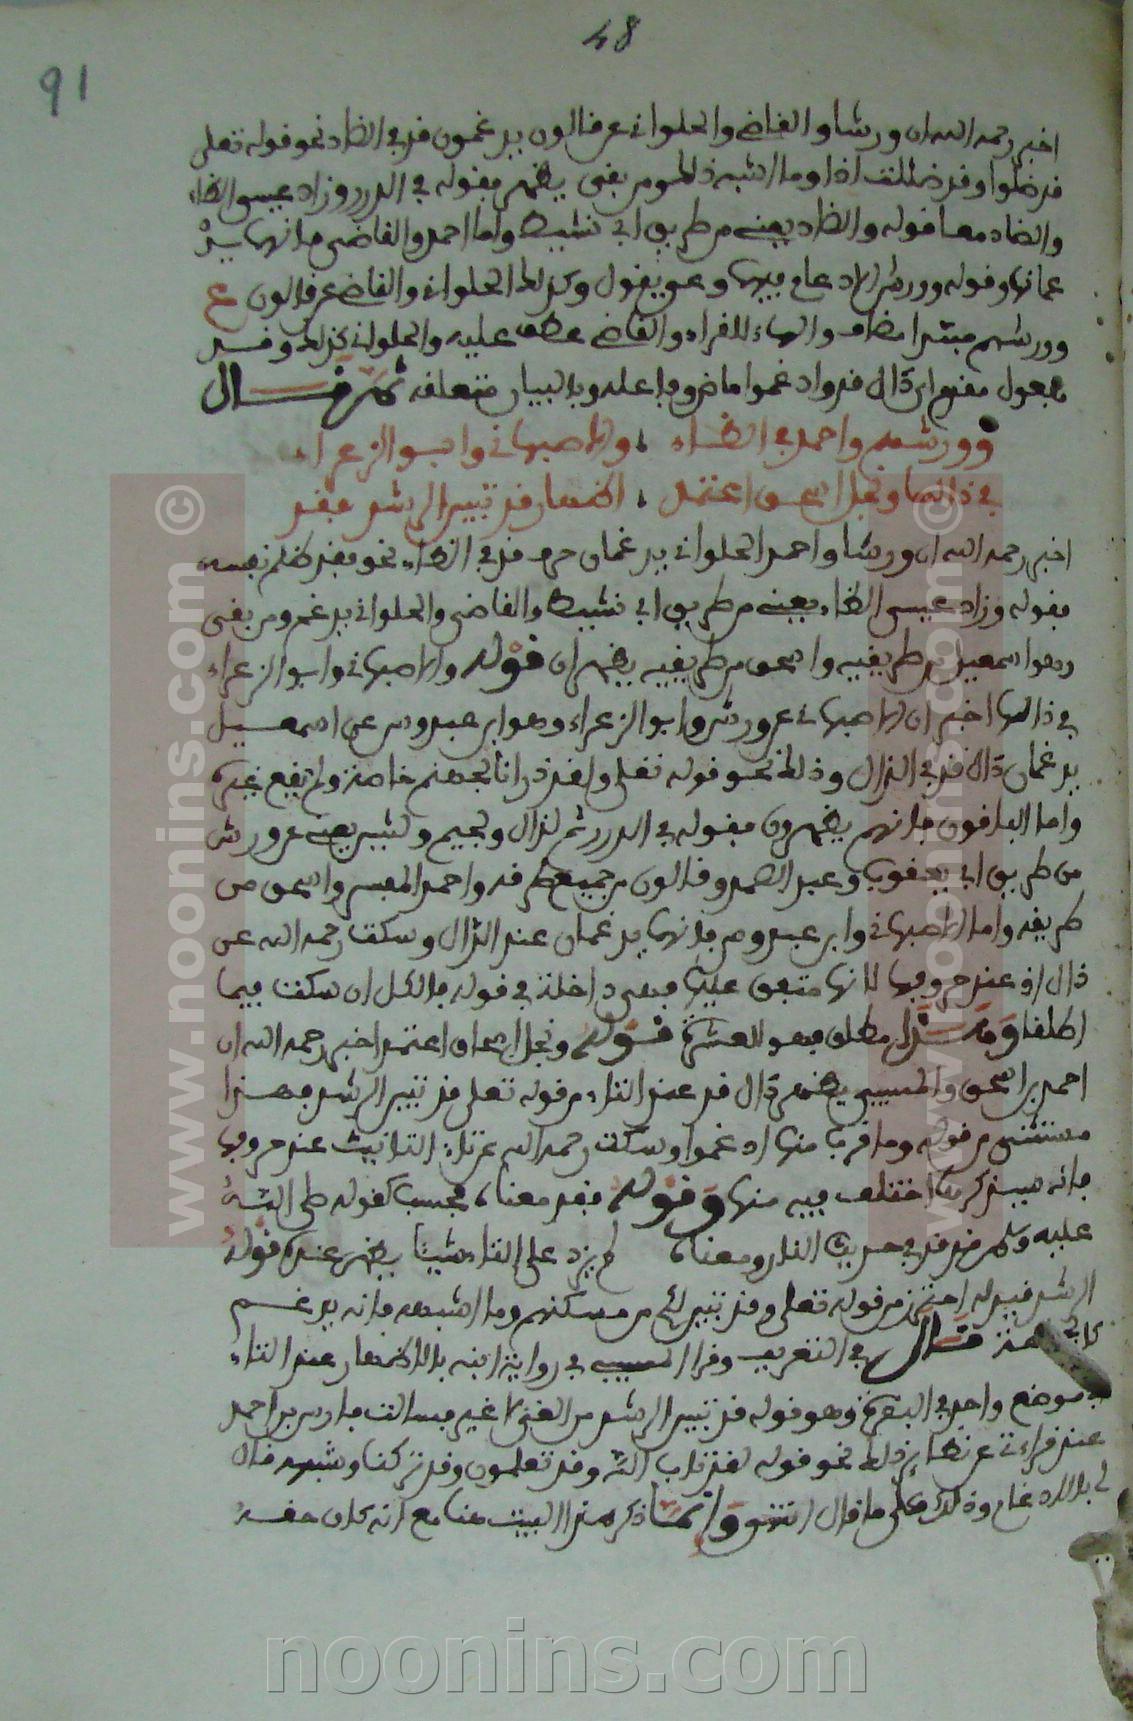 48
91
اخبر رحمه الله ان ورشا والقاضي والحلواني عن قالون يدغمون قد في الضاد نحو قوله تعلى
قد ضلوا وقد ضللت اذا وما اشبه ذلك ومن بقى يظهر بقوله في الدرر وزاد عيسى الظاء
والضاد معا قوله والضاد يعني من طريق ابي نشيط واما احمد والقاضي فانهما
وقوله وورش الادغام فيها وهو يقول وكذلك الحلواني والقاضي عن قالون ع
وورشهم مبتدا مضاف والهاء للقراء والقاضي عطف عليه والحلواني كذلك وقد
مفعول مقدم اي دال قد وادغموا ماض وفاعله وبالبيان متعلقه ثم قال
وورشهم واحمد في الظاء ، والاصبهاني وابو الزعراء
في ذالها ونجل اسحق اعتمد ، الاظهار قد تبين الرشد فقد
اخبر رحمه الله ان ورشا واحمد الحلواني يدغمان حرف قد في الظاء نحو فقد ظلم نفسه
بقوله وزاد عيسى الظاء يعني من طريق ابي نشيط والقاضي والحلواني يدغم ومن بقى
وهو اسمعيل من طريقيه واسحق من طريقيه يظهران قوله والاصبهاني وابو الزعراء
في ذالها اخبر ان الاصبهاني عن ورش وابو الزعراء وهو ابن عبدوس عن اسمعيل
يدغمان دال قد في الذال وذلك نحو قوله تعلى ولقد ذرانا لجهنم خاصة ولم يقع غيره
واما الباقون فانهم يظهرون بقوله في الدرر ثم لذال ولجيم ولشين يعني عن ورش
من طريق ابي يعقوب وعبد الصمد وقالون من جميع طرقه واحمد المفسر واسحق من
طريقه واما الاصبهاني وابن عبدوس فانهما يدغمان عند الذال وسكت رحمه الله عن
ذال اذ عند حروفها لانها متفق عليها فهي داخلة في قوله بالكل ان سكت فيما
اطلقا وهذا مطلق فهو للعشرة قوله ونجل اسحاق اعتمد اخبر رحمه الله ان
احمد بن اسحق والمسيبي يظهر دال قد عند التاء من قوله تعلى قد تبين الرشد فهذا
مستثنى من قوله وما قرب منها ادغموا وسكت رحمه الله عن تاء التانيث عند حروفها
فانه سيذكر ما اختلف فيه منها وقوله فقد معناه فحسب كقوله صلى الله
عليه وسلم قد قد في حديث النار ومعناه لم يزد على التاء شيئا يظهر عنده قوله
الرشد قيد له احترز من قوله تعلى وقد تبين لكم من مسكنهم وما اشبهه فانه يدغم
قال في التعريف وقرا المسيبي في رواية ابنه بالاظهار عند التاء
موضع واحد في البقرة وهو قوله قد تبين الرشد من الغي لا غير فسالت فارس بن احمد
عند قراءتي عن نظائر ذلك نحو قوله لقد تاب الله وقد تعلمون وقد تركنا وشبهه فقال
لي بالادغام وذلك على ما قال انتهى وانما ذكر هذا البيت هنا مع انه كان حقه
www.noonins.com ©
www.noonins.com ©
noonins.com